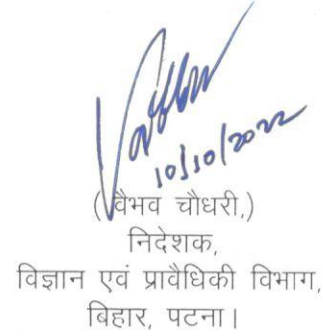 10/10/2022
(वैभव चौधरी,)
निदेशक,
विज्ञान एवं प्रावैधिकी विभाग,
बिहार, पटना।